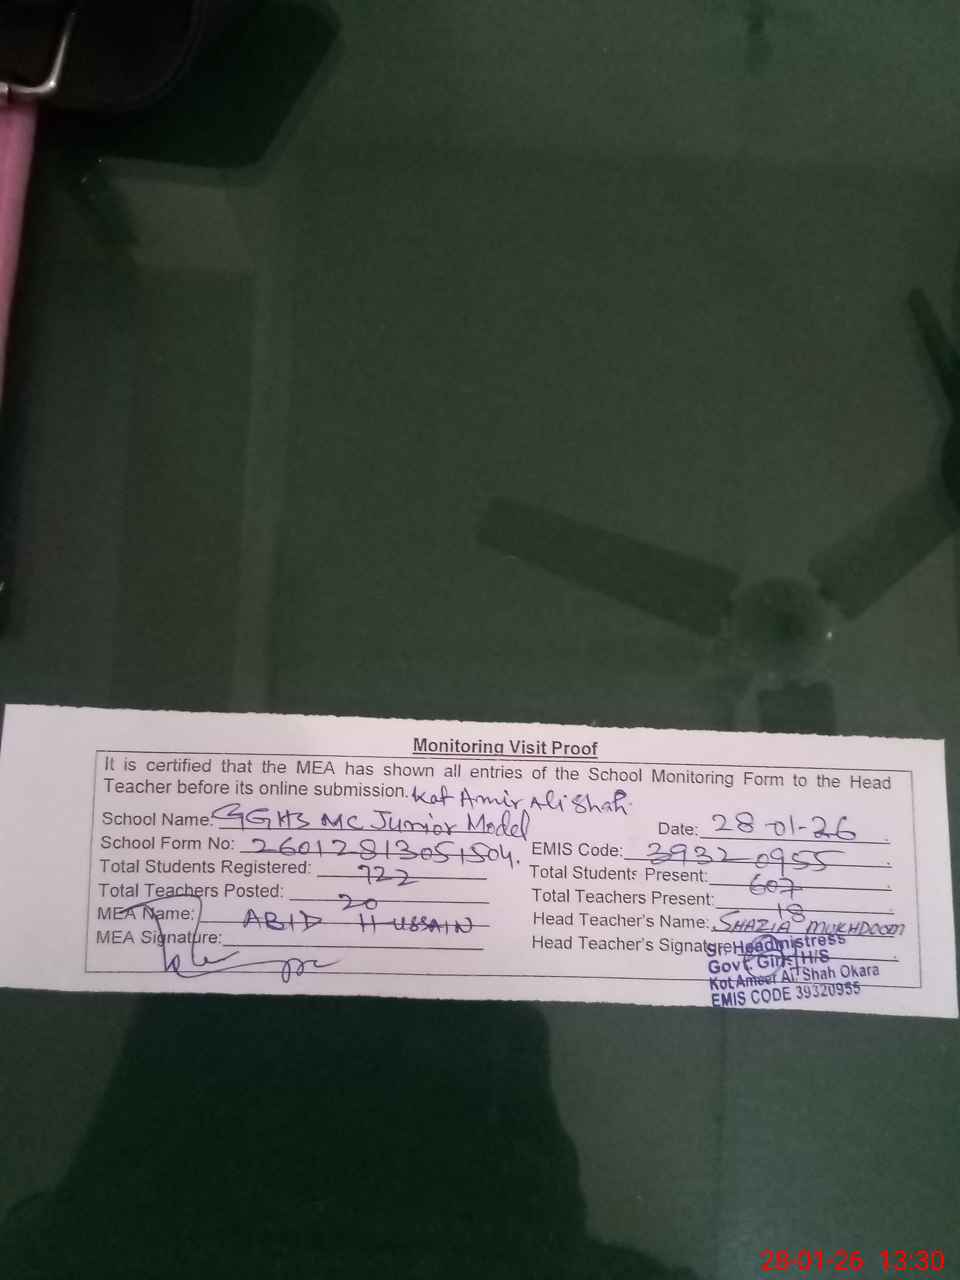 Monitoring Visit Proof
It is certified that the MEA has shown all entries of the School Monitoring Form to the Head
Teacher before its online submission. Kot Amir Ali Shah.
School Name: GGHS MC Junior Model
Date: 28-01-26
School Form No: 26012813051504.
EMIS Code: 39320955
Total Students Registered: 722
Total Students Present: 607
Total Teachers Posted: 20
Total Teachers Present: 18
MEA Name: ABID HUSSAIN
Head Teacher's Name: SHAZIA MUKHDOOM
MEA Signature:
Head Teacher's Signature:
Headmistress
Govt. Girls H/S
Kot Ameer Ali Shah Okara
EMIS CODE 39320955
28-01-26 13:30